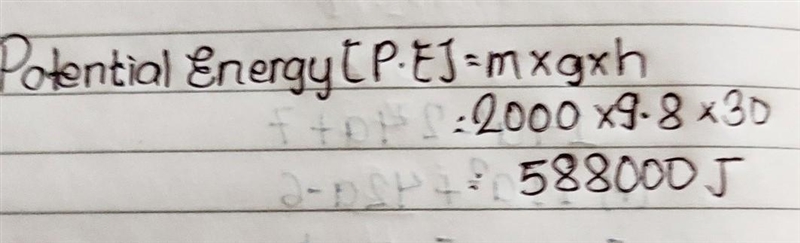 Potential Energy [P.E] = m×g×h
:2000 ×9.8 ×30
: 588000 J